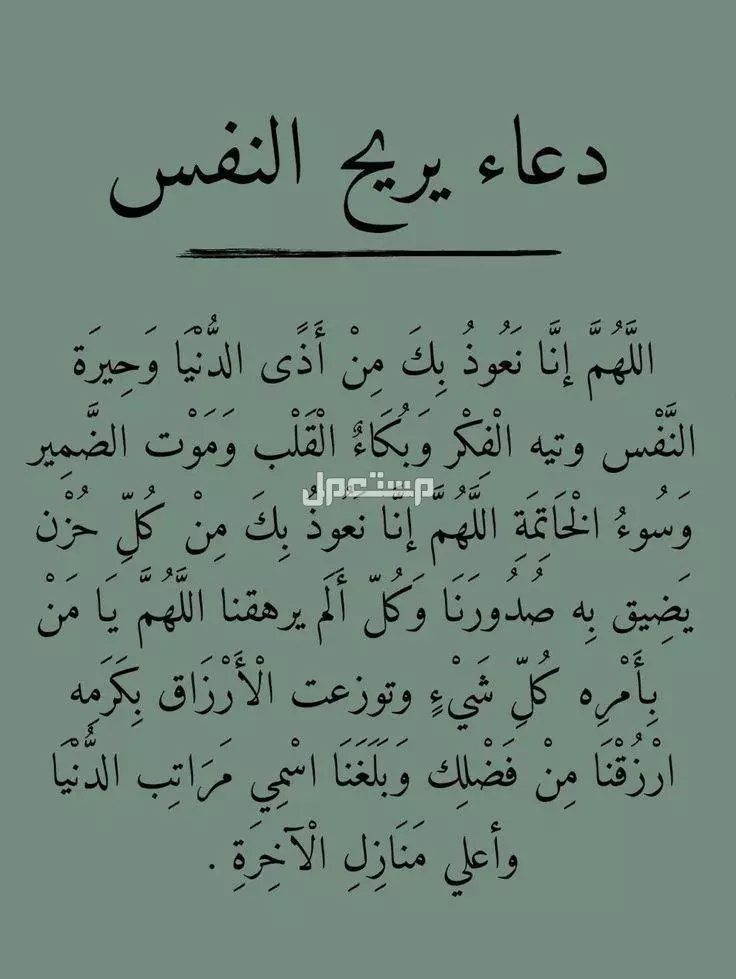 دعاء يريح النفس
اللَّهُمَّ إنَّا نَعُوذُ بِكَ مِنْ أَذًى الدُّنْيَا وَحِيرَة
النَّفْس وتيه الْفِكْر وَبُكَاءٌ الْقَلْب وَمَوْت الضَّمِير
مستعمل
وَسُوءُ الْخَاتِمَةِ اللَّهُمَّ إنَّا نَعُوذُ بِكَ مِنْ كُلِّ حُزْن
يَضِيق بِه صُدُورَنَا وَكُلّ أَلَم يرهقنا اللَّهُمَّ يَا مَنْ
بِأَمْرِه كُلِّ شَيْءٍ وتوزعت الْأَرْزَاق بِكَرَمِه
ارْزُقْنَا مِنْ فَضْلِك وَبَلَغَنَا اسْمِي مَرَاتِب الدُّنْيَا
وأعلي مَنَازِلِ الْآخِرَةِ .